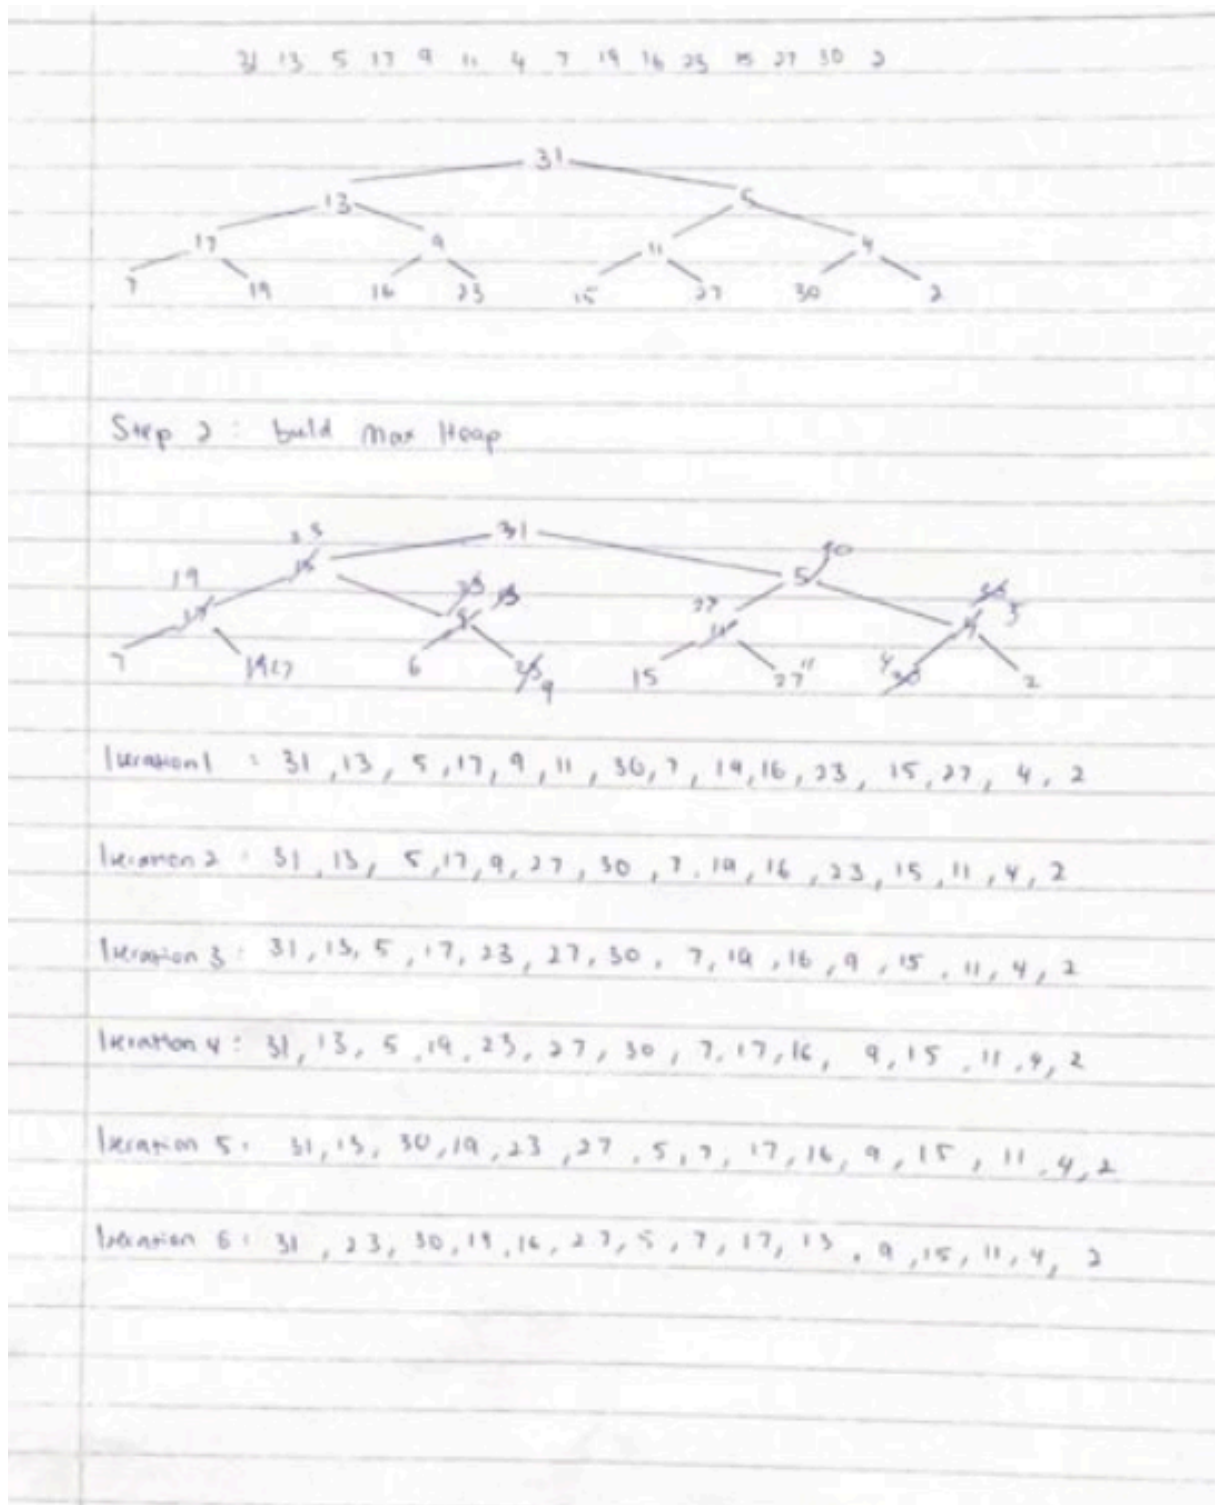 31 13 5 17 9 11 4 7 19 16 23 15 27 30 2
31
13 5
17 9 11 4
7 19 16 23 15 27 30 2
Step 2: build Max Heap
31
23 5
19 27
7 6 9 15 27 11 4 2
Iteration 1 : 31, 13, 5, 17, 9, 11, 30, 7, 19, 16, 23, 15, 27, 4, 2
Iteration 2 : 31, 13, 5, 17, 9, 27, 30, 7, 19, 16, 23, 15, 11, 4, 2
Iteration 3 : 31, 13, 5, 17, 23, 27, 30, 7, 19, 16, 9, 15, 11, 4, 2
Iteration 4 : 31, 13, 5, 19, 23, 27, 30, 7, 17, 16, 9, 15, 11, 4, 2
Iteration 5 : 31, 13, 30, 19, 23, 27, 5, 7, 17, 16, 9, 15, 11, 4, 2
Iteration 6 : 31, 23, 30, 19, 16, 27, 5, 7, 17, 13, 9, 15, 11, 4, 2